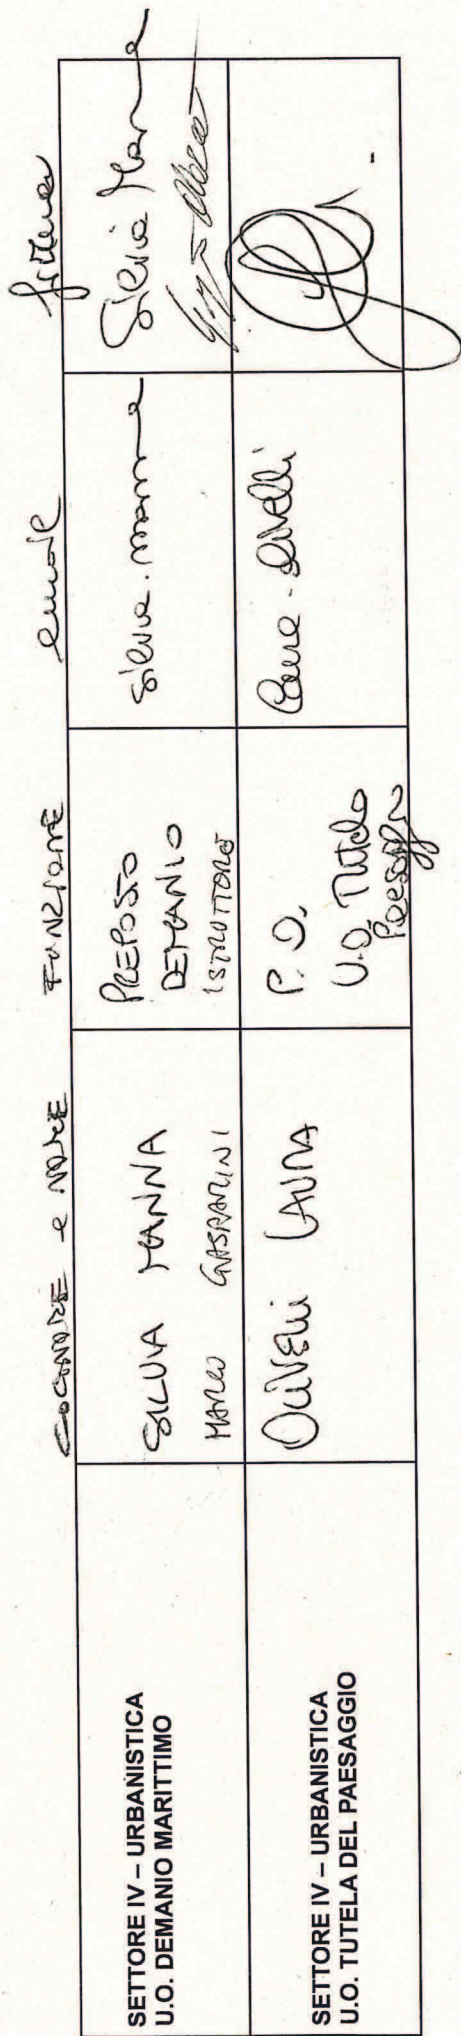 COGNOME e NOME FUNZIONE email firma
SETTORE IV – URBANISTICA
U.O. DEMANIO MARITTIMO
SILVIA MANNA
MARCO GASPARINI
PREPOSTO
DEMANIO
ISTRUTTORE
silvia.manna
Silvia Manna
SETTORE IV – URBANISTICA
U.O. TUTELA DEL PAESAGGIO
OLIVELLI LAURA
P.O.
U.O. Tutela
Paesaggio